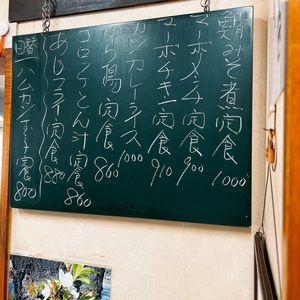 鯖みそ煮定食 1000
マーボメンチ定食 900
マーボチキン定食 910
カツカレーライス 1000
から揚定食 860
コロッケとん汁定食 860
あじフライ定食 880
日替 ハムカツ玉子定食 800